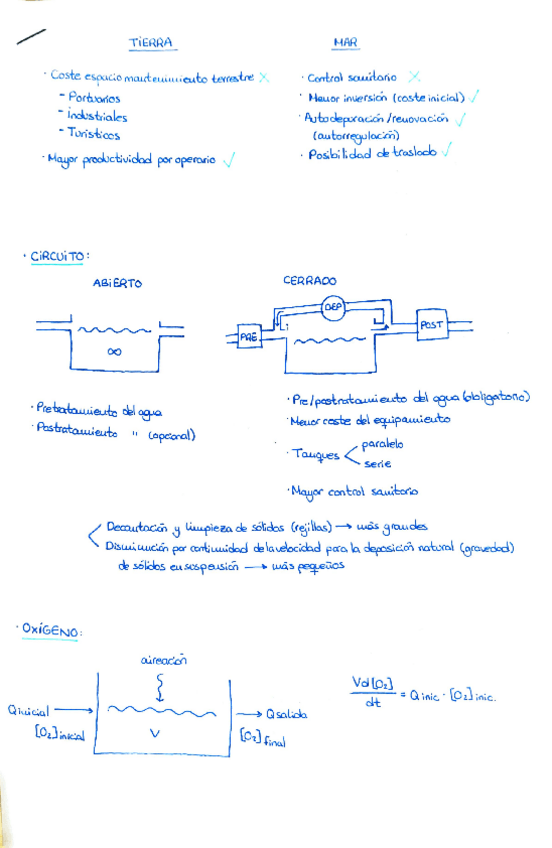 TIERRA
· Coste espacio mantenimiento terrestre X
- Portuarios
- industriales
- Turísticos
· Mayor productividad por operario ✓
MAR
· Control sanitario X
· Menor inversión (coste inicial) ✓
· Autodepuración/renovación ✓
(autorregulación)
· Posibilidad de traslado ✓
· CIRCUITO:
ABIERTO
∞
· Pretratamiento del agua
· Postratamiento " (opcional)
CERRADO
PRE
DEP
POST
· Pre/postratamiento del agua (obligatorio)
· Menor coste del equipamiento
· Tanques
paralelo
serie
· Mayor control sanitario
Decantación y limpieza de sólidos (rejillas) → más grandes
Disminución por continuidad de la velocidad para la deposición natural (gravedad)
de sólidos en suspensión → más pequeños
· OXÍGENO:
aireación
Q inicial
[O₂] inicial
V
Q salida
[O₂] final
Vd[O₂]/dt = Q inic. · [O₂] inic.